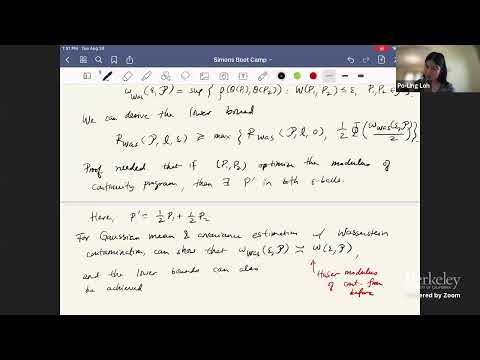 1:51 PM Tue Aug 24
Simons Boot Camp
Po-Ling Loh
ω_Was(ε,P) = sup { ρ(θ(P₁),θ(P₂)) : W(P₁,P₂) ≤ ε, P₁,P₂
We can derive the lower bound
R_Was(P,l,ε) ≥ max { R_Was(P,l,0), 1/2 Φ(ω_Was(ε,P)/2) }
Proof needed that if (P₁,P₂) optimize the modulus of
continuity program, then ∃ P' in both ε-balls.
Here, P' = 1/2 P₁ + 1/2 P₂
For Gaussian mean & covariance estimation w/ Wasserstein
contamination, can show that ω_Was(ε,P) ≍ ω(ε,P),
and the lower bounds can also
be achieved
↑ Huber modulus
of cont. from
before
Berkeley
UNIVERSITY OF CALIFORNIA
Powered by Zoom